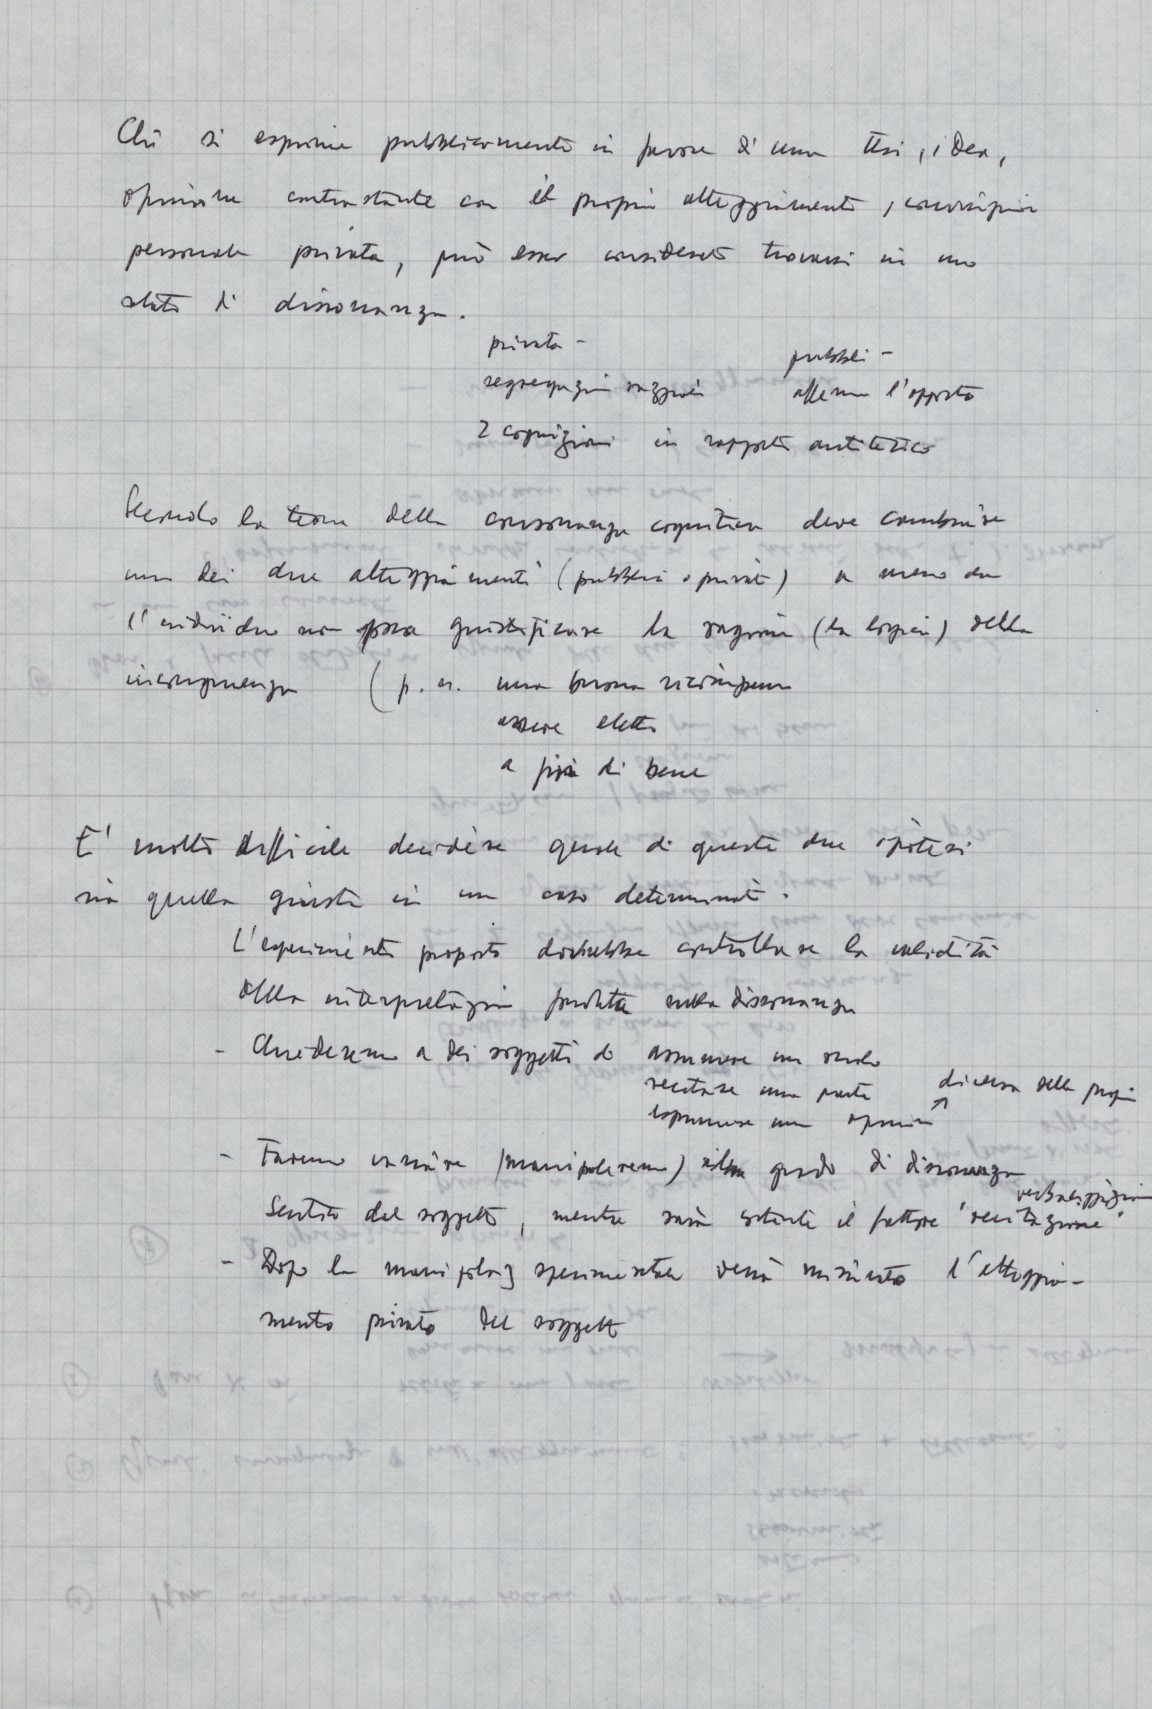 Chi si esprime pubblicamente in favore di una tesi, idea,
opinione contrastante con il proprio atteggiamento, convinzione
personale privata, può esser considerato trovarsi in uno
stato di dissonanza.
privata - pubbli -
segregazioni razziali afferma l'opposto
2 cognizioni in rapporto antitetico
Secondo la teoria della consonanza cognitiva deve cambiare
uno dei due atteggiamenti (pubblici o privati) a meno che
l'individuo non possa giustificare la ragione (la logica) della
incongruenza (p. es. una buona ricompensa
essere eletto
a fin di bene
E' molto difficile decidere quale di queste due ipotesi
sia quella giusta in un caso determinato.
L'esperimento proposto dovrebbe controllare la validità
della interpretazione fondata sulla dissonanza
- Chiederemo a dei soggetti di assumere un ruolo
recitare una parte diversa dalla propria
esprimere una opinione ↗
- Faremo variare (manipoleremo) il grado di dissonanza
verbalizzazione
sentito dal soggetto, mentre sarà costante il fattore "recitazione"
- Dopo la manipolaz sperimentale verrà misurato l'atteggia-
mento privato del soggetto